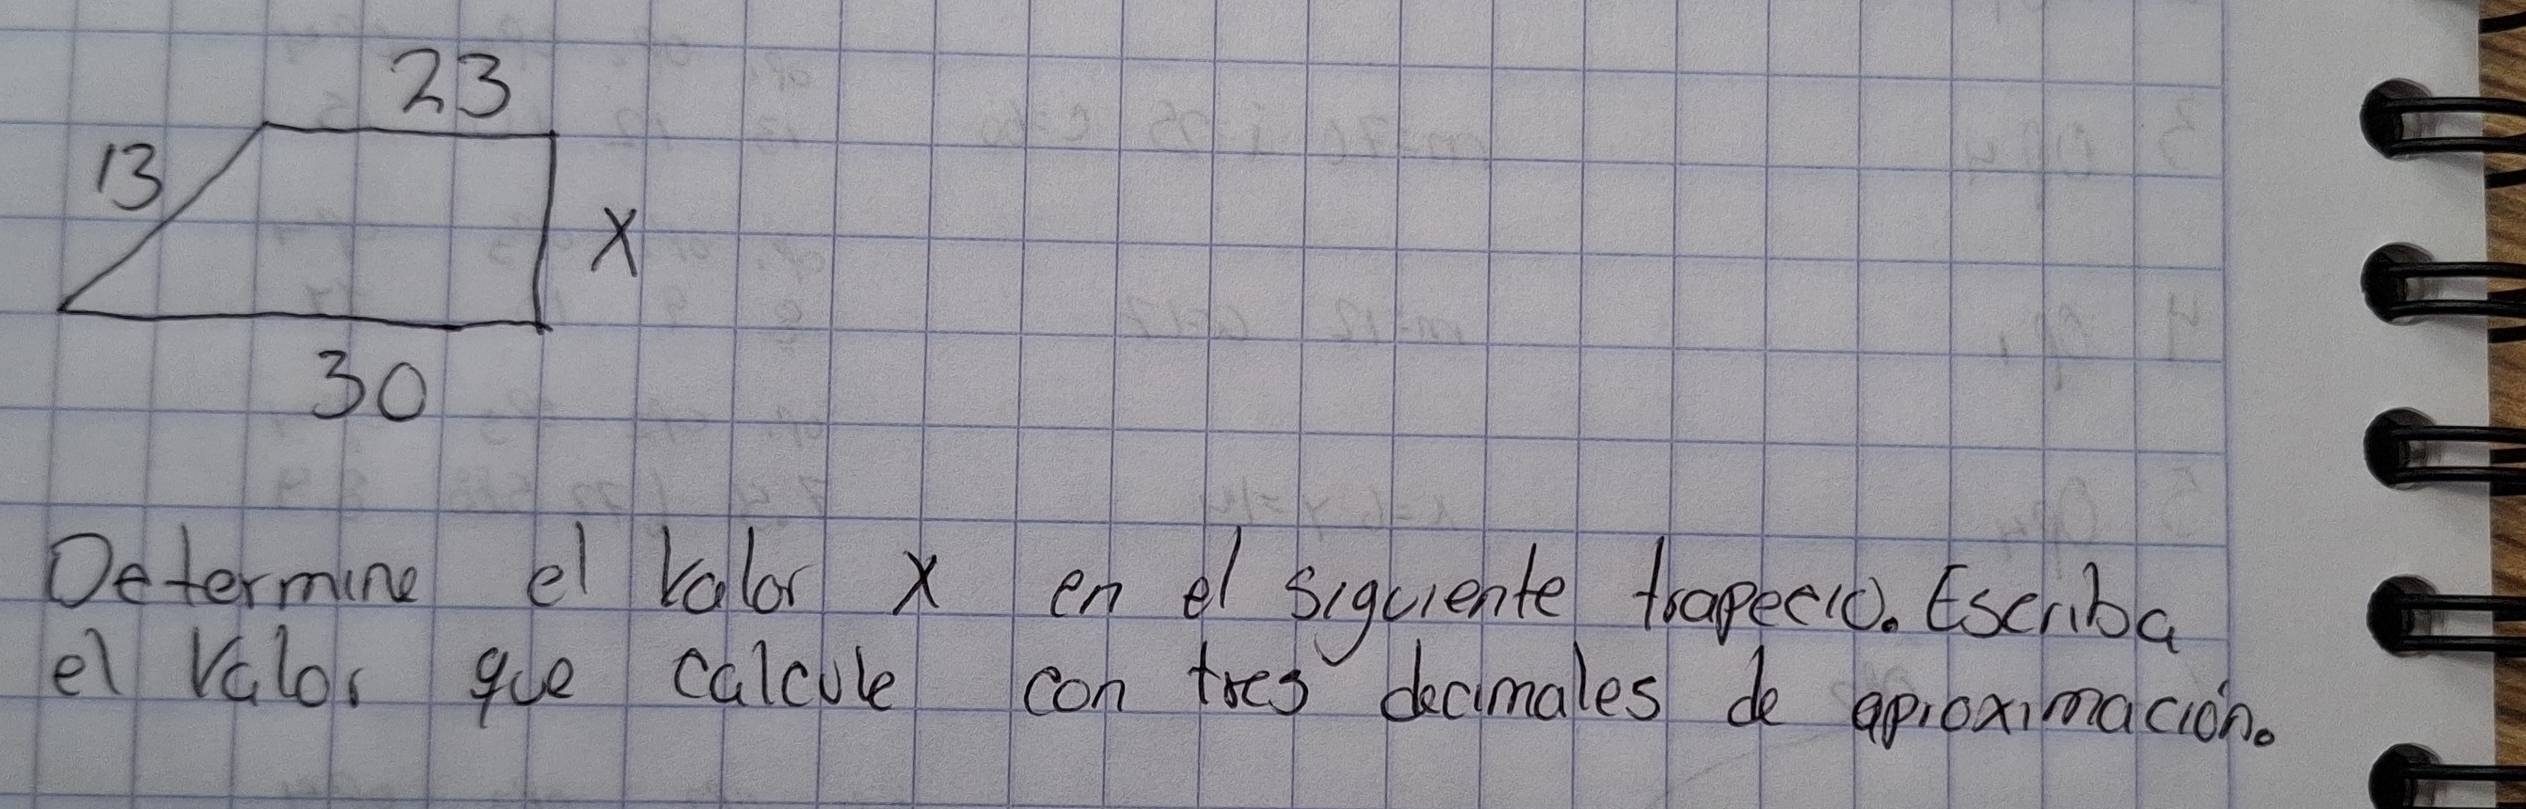 23
13
X
30
Determine el valor x en el siguiente trapecio. Escriba
el valor que calcule con tres decimales de aproximación.